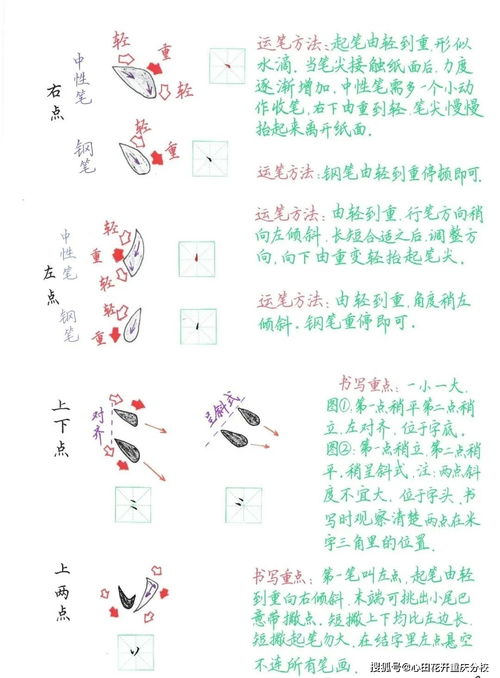 右点
中性笔
轻
重
轻
运笔方法:起笔由轻到重,形似
水滴。当笔尖接触纸面后,力度
逐渐增加,中性笔需多一个小动
作收笔,右下由重到轻,笔尖慢慢
抬起来离开纸面。
钢笔
轻
重
运笔方法:钢笔由轻到重停顿即可.
左点
中性笔
轻
重
轻
运笔方法:由轻到重,行笔方向稍
向左倾斜,长短合适之后,调整方
向,向下由重变轻抬起笔尖。
钢笔
轻
重
运笔方法:由轻到重,角度稍左
倾斜。钢笔重停即可.
上下点
对齐
呈斜式
书写重点:一小一大,
图①,第一点稍平第二点稍
立,左对齐,位于字底。
图②:第一点稍立,第二点稍
平,稍呈斜式,注:两点斜
度不宜大,位于字头,书
写时观察清楚两点在米
字三角里的位置.
上两点
书写重点:第一笔叫左点,起笔由轻
到重向右倾斜,末端可挑出小尾巴
意带撇点。短撇上下均比左边长.
短撇起笔勿大,在结字里左点悬空
不连所有笔画.
搜狐号@心田花开重庆分校